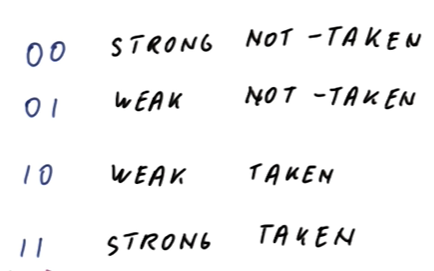 00 STRONG NOT-TAKEN
01 WEAK NOT-TAKEN
10 WEAK TAKEN
11 STRONG TAKEN